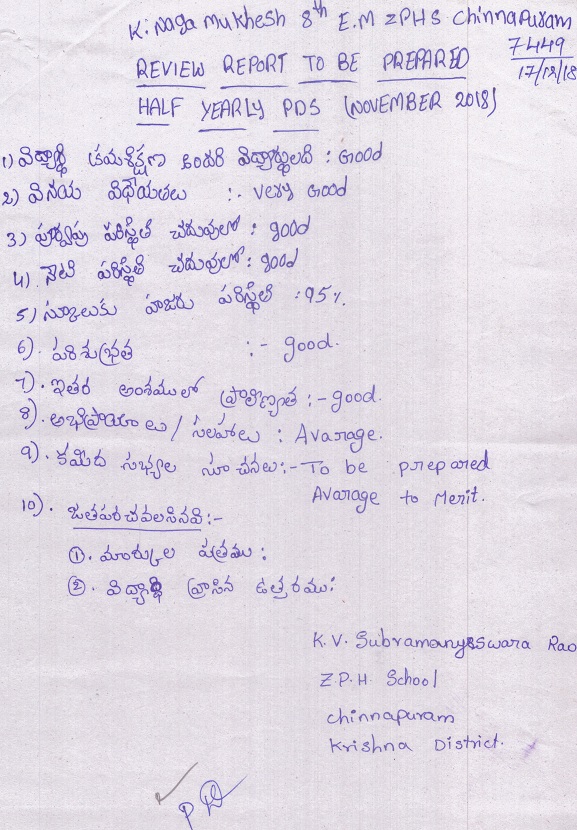 K. Naga Mukhesh 8th E.M ZPHS Chinnapuram
7449
17/12/18
REVIEW REPORT TO BE PREPARED
HALF YEARLY PDS (NOVEMBER 2018)
1) విద్యార్థి క్రమశిక్షణ ఇందరి విద్యార్థులది : Good
2) వినయ విధేయతలు :- Very Good
3) పూర్వపు పరిస్థితి చదువులో : good
4) నేటి పరిస్థితి చదువులో : good
5) స్కూలుకు హాజరు పరిస్థితి : 95%.
6). పరిశుభ్రత :- good.
7). ఇతర అంశములో ప్రావీణ్యత :- good.
8). అభిప్రాయాలు / సలహాలు : Avarage.
9). కమిటి సభ్యుల సూచనలు :- To be prepared
Avarage to Merit.
10). జతపరచవలసినవి :-
①. మార్కుల పత్రము :
②. విద్యార్థి వ్రాసిన ఉత్తరము :
K.V. Subramanyeswara Rao
Z.P.H School
chinnapuram
Krishna District.